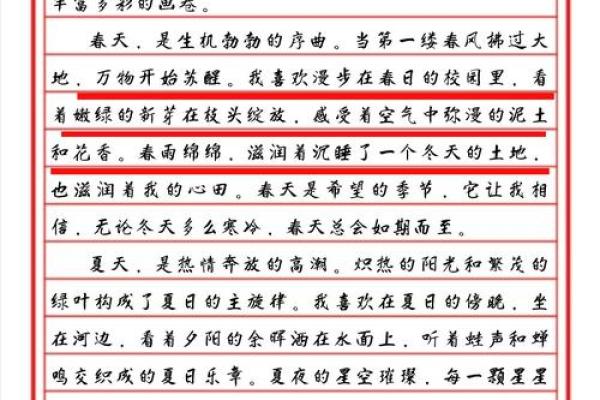 丰富多彩的画卷。
春天，是生机勃勃的序曲。当第一缕春风拂过大
地，万物开始苏醒。我喜欢漫步在春日的校园里，看
着嫩绿的新芽在枝头绽放，感受着空气中弥漫的泥土
和花香。春雨绵绵，滋润着沉睡了一个冬天的土地，
也滋润着我的心田。春天是希望的季节，它让我相
信，无论冬天多么寒冷，春天总会如期而至。
夏天，是热情奔放的高潮。炽热的阳光和繁茂的
绿叶构成了夏日的主旋律。我喜欢在夏日的傍晚，坐
在河边，看着夕阳的余晖洒在水面上，听着蛙声和蝉
鸣交织成的夏日乐章。夏夜的星空璀璨，每一颗星星